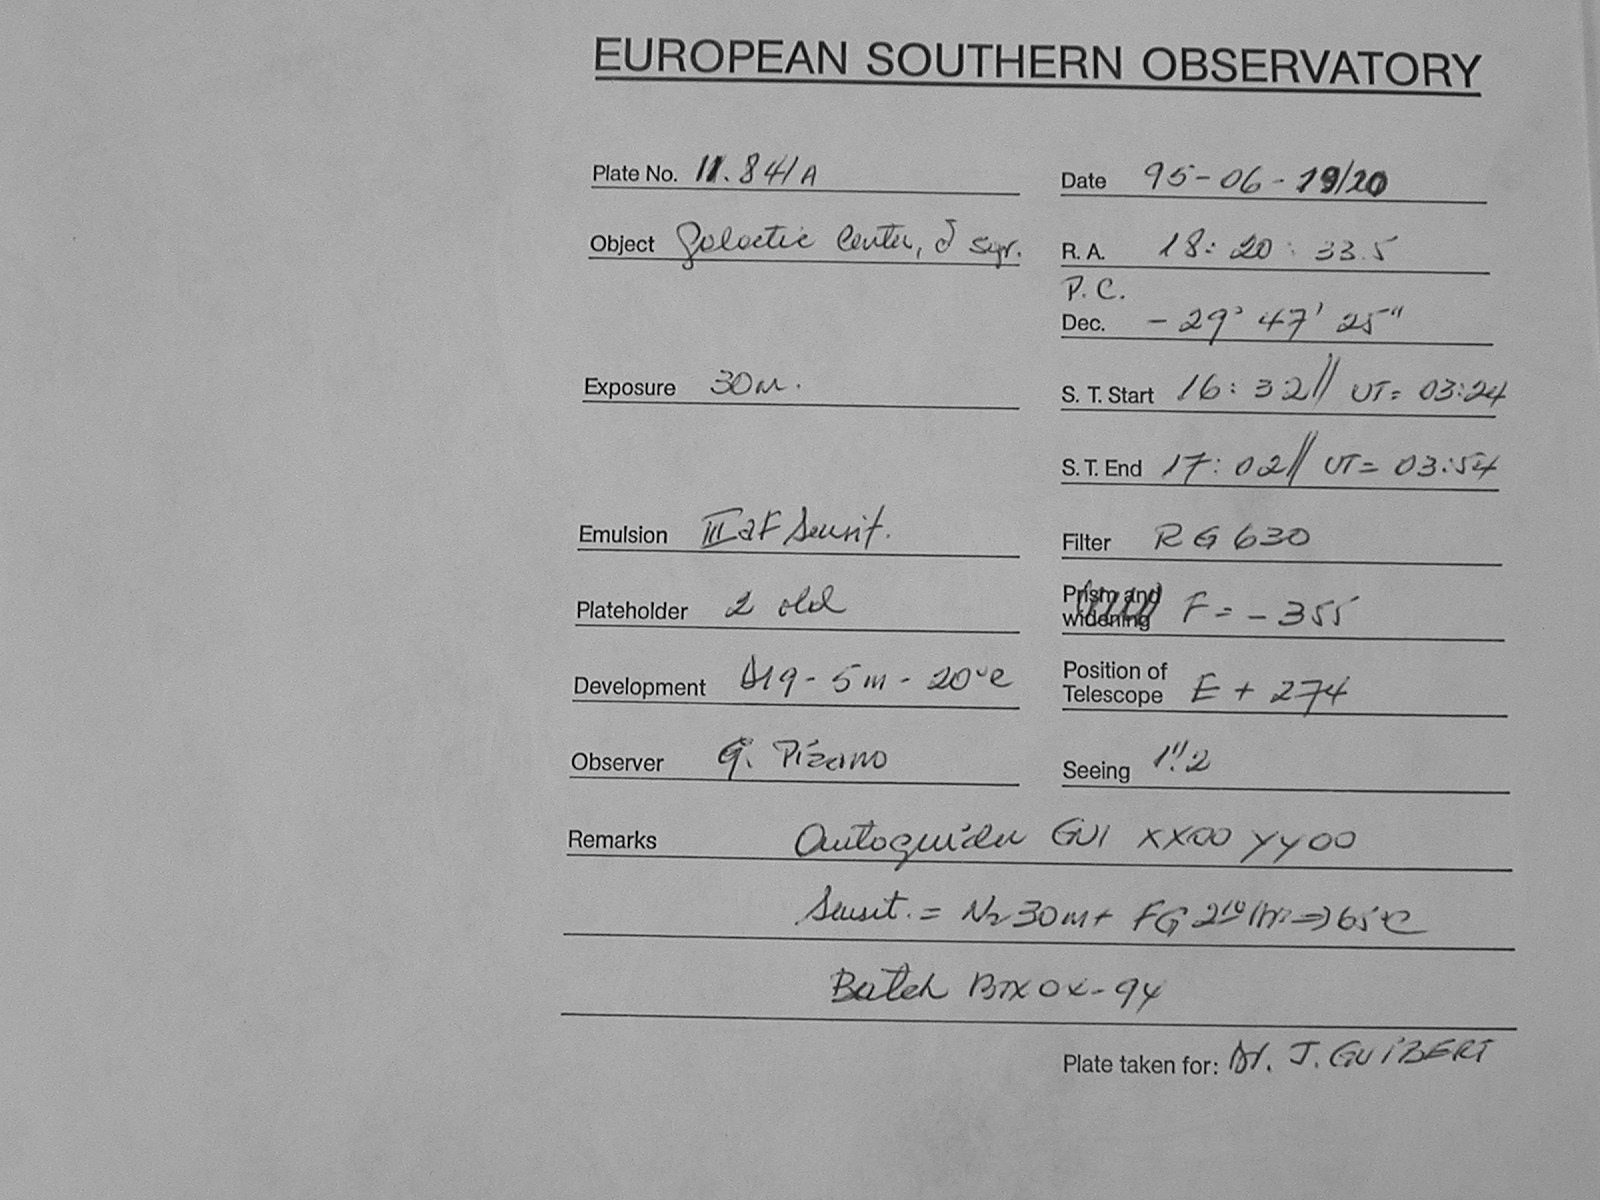 EUROPEAN SOUTHERN OBSERVATORY
Plate No. 11.841A
Date 95-06-19/20
Object Galactic Center, δ sgr.
R. A. 18: 20: 33.5
P. C.
Dec. - 29° 47' 25"
Exposure 30m.
S. T. Start 16: 32// UT= 03:24
S. T. End 17: 02// UT= 03:54
Emulsion III aF Sensit.
Filter RG 630
Plateholder 2 old
Prism and widening F = - 355
Development D19 - 5m - 20°C
Position of Telescope E + 274
Observer G. Pizarro
Seeing 1".2
Remarks Autoguider GUI XX00 YY00
Sensit. = N2 30m + FG => 65°C
Batch
Plate taken for: Dr. J. GUIBERT